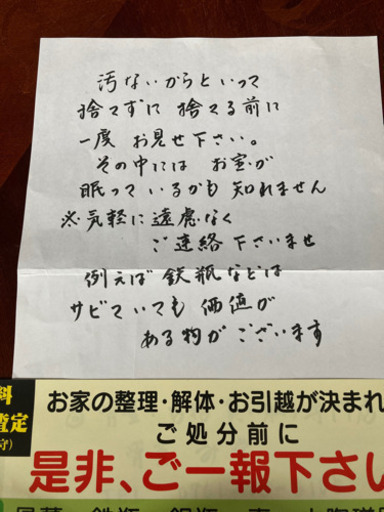 汚ないからといって
捨てずに 捨てる前に
一度 お見せ下さい。
その中には お宝が
眠っているかも 知れません
※気軽に遠慮なく
ご連絡下さいませ
例えば 鉄瓶などは
サビていても 価値が
ある物が ございます
料
査定
守)
お家の整理・解体・お引越が決まれ
ご処分前に
是非、ご一報下さい